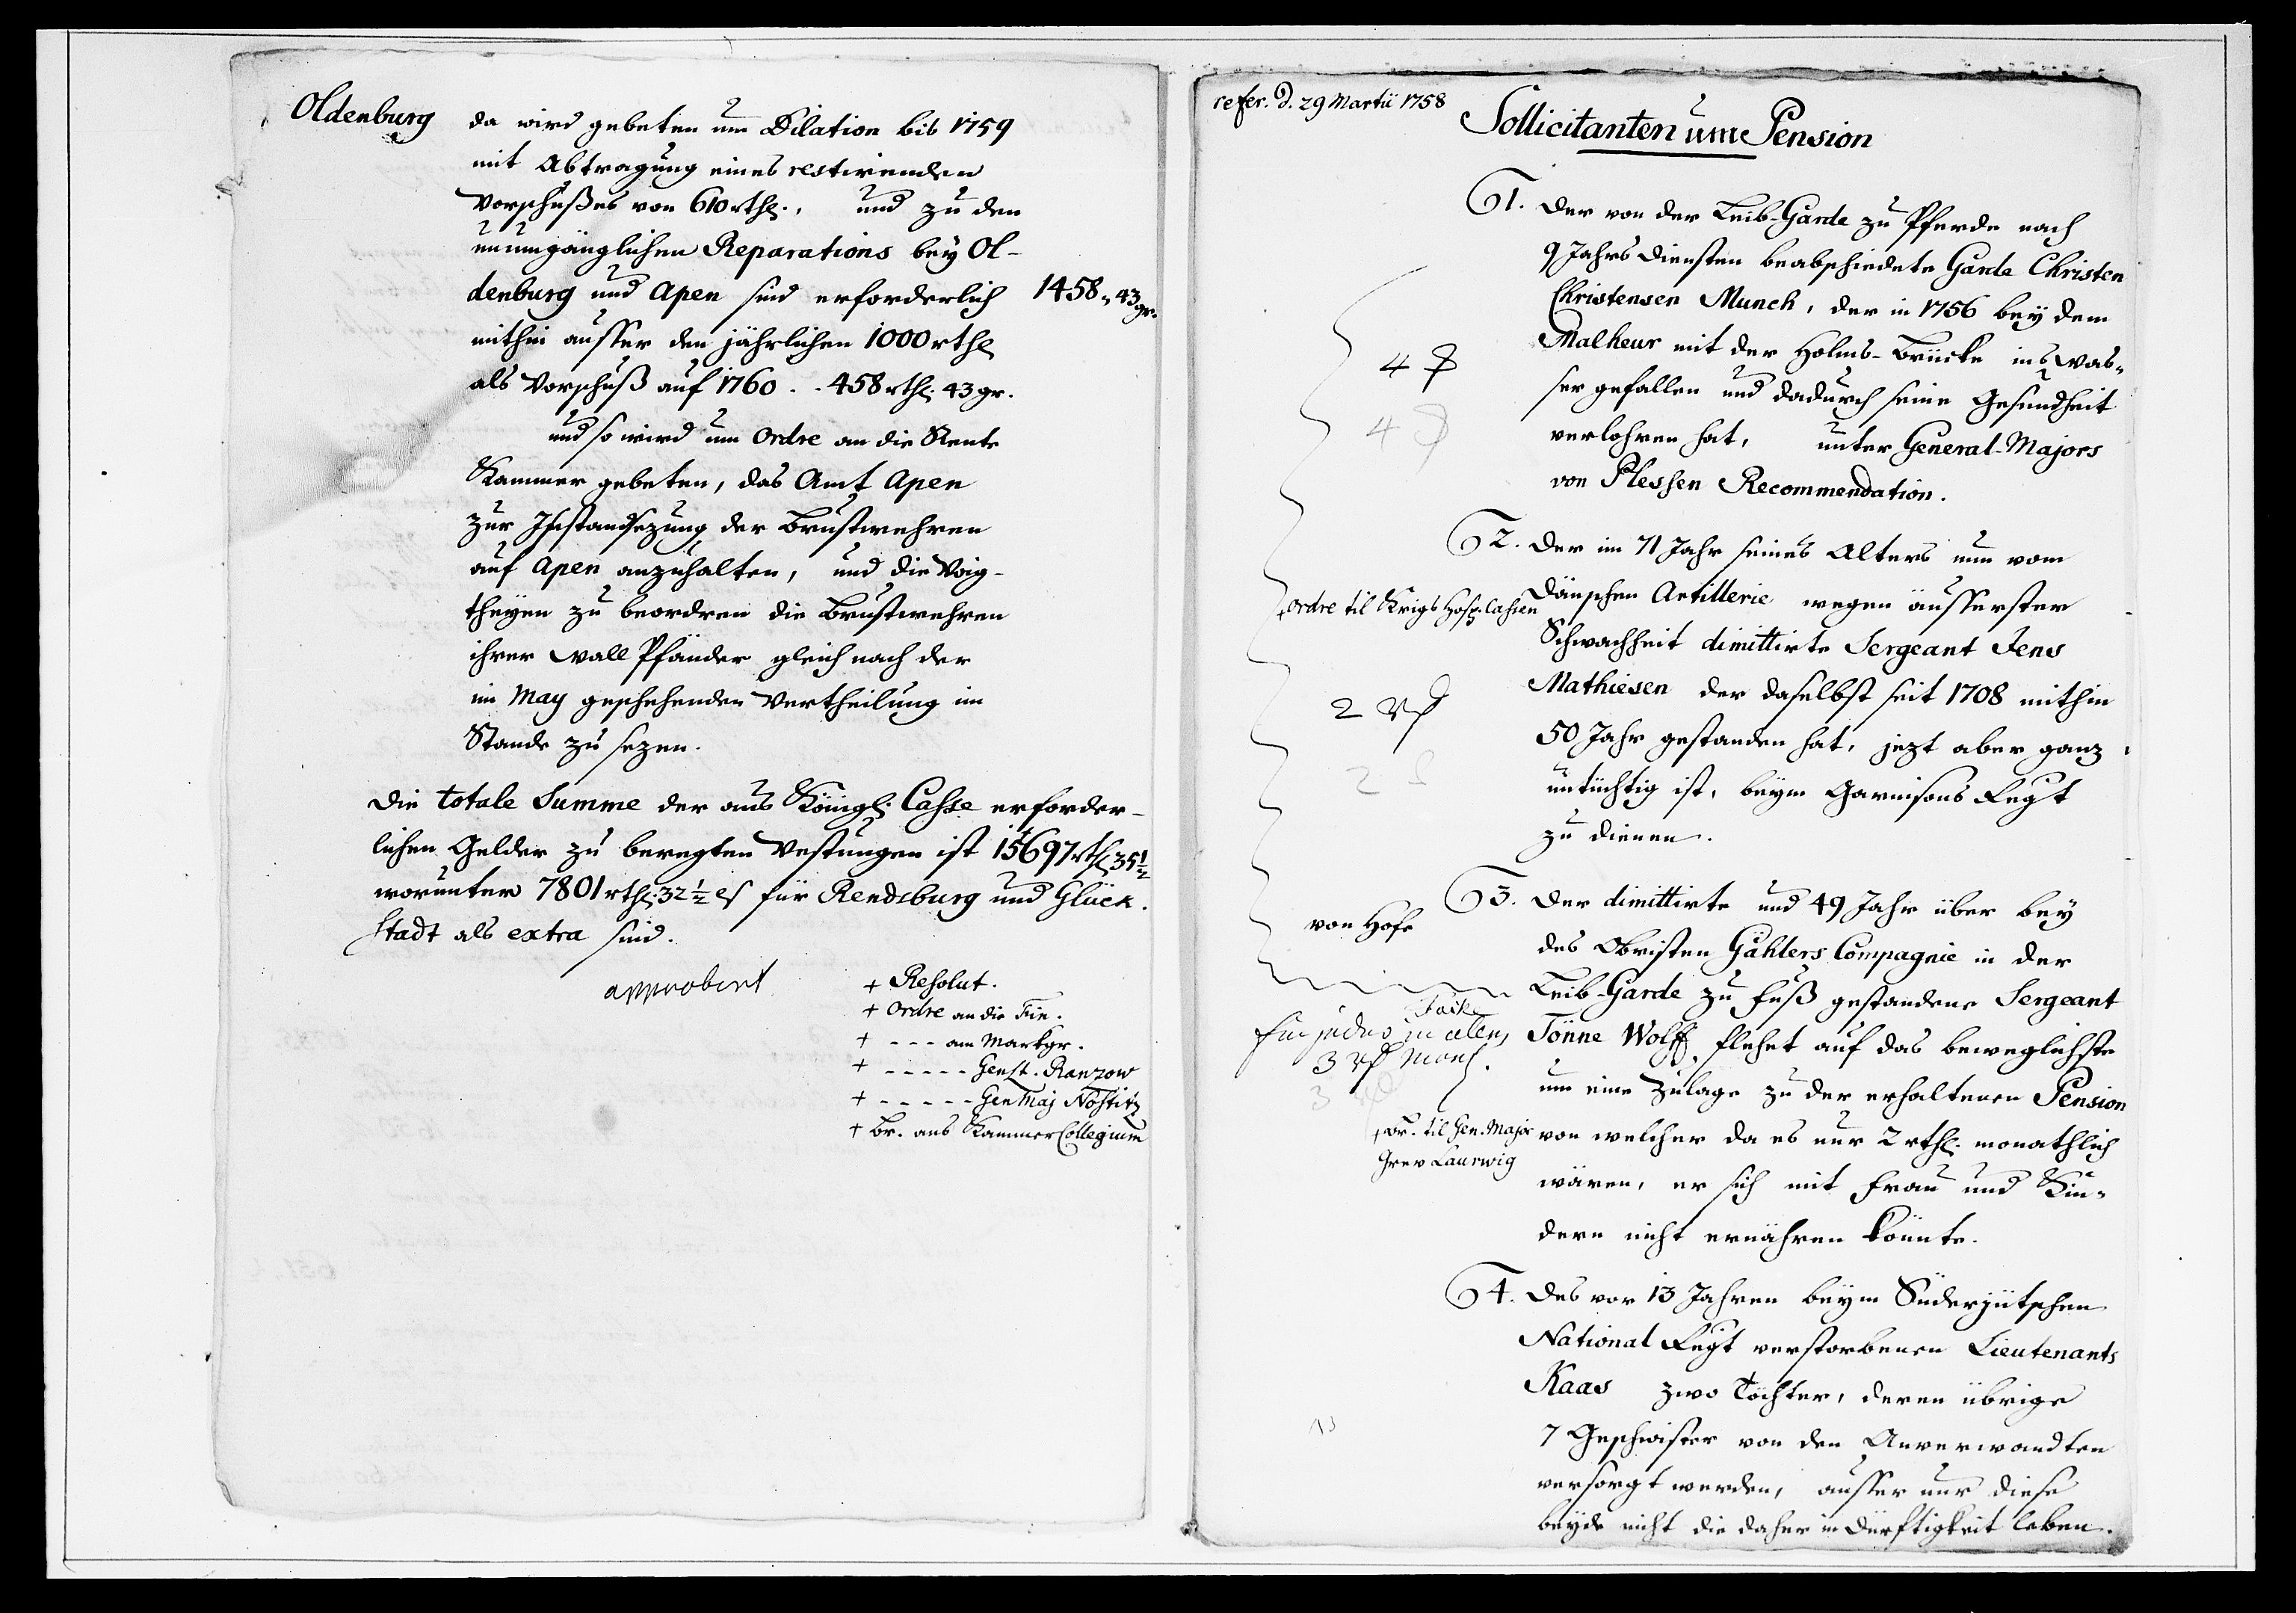 Oldenburg
da wird gebeten um Dilation bis 1759
mit Abtragung eines restirenden
Vorschußes von 610 rthl., und zu den
unumgänglichen Reparations bey Ol-
denburg und Apen sind erforderlich 1458 „ 43 gr.
mithin ausser den jährlichen 1000 rthl
als Vorschuß auf 1760 . . 458 rthl. 43 gr.
und so wird um Ordre an die Rente
Kammer gebeten, das Amt Apen
zur Instandsezung der Brustwehren
auf Apen anzuhalten, und die Voig-
theyen zu beordren die Brustwehren
ihrer Wall Pfänder gleich nach der
im May geschehenden Vertheilung im
Stande zu sezen.
Die totale Summe der aus Königl. Casse erforder-
lichen Gelder zu beregten Vestungen ist 15697 rthl 35 1/2
worunter 7801 rthl. 32 1/2 ß für Rendsburg und Glück-
stadt als extra sind.
approbirt
+ Resolut.
+ Ordre an die Fin.
+ --- am Markgr.
+ ----- GenLt. Ranzow
+ ----- GenMaj Nostitz
+ Br. ans Kammer Collegium
refer. d. 29 Martii 1758
Sollicitanten um Pension
1. Der von der Leib-Garde zu Pferde nach
9 Jahrs Diensten beabschiedete Garde Christen
Christensen Munch, der in 1756 bey dem
Malheur mit der Holms-Brücke ins Was-
ser gefallen und dadurch seine Gesundheit
verlohren hat, unter General-Majors
von Plessen Recommendation.
4
4
2. Der im 71 Jahr seines Alters nun vom
Dänschen Artillerie wegen äusserster
Schwachheit dimittirte Sergeant Jens
Mathiesen der daselbst seit 1708 mithin
50 Jahr gestanden hat, jezt aber ganz
untüchtig ist, beym Garnisons Regt
zu dienen.
Ordre til Krigs Hosp. Cassen
2 Rd
2
3. Der dimittirte und 49 Jahr über bey
des Obristen Gählers Compagnie in der
Leib-Garde zu Fuß gestandene Sergeant
Tönne Wolff flehet auf das beweglichste
um eine Zulage zu der erhaltenen Pension
von welcher da es nur 2 rthl. monathlich
wären, er sich mit Frau und Kin-
dern nicht ernähren könnte.
von Hofe
in allem
3 Rd
3
Or. til Gen. Major
Grev Laurwig
4. Des vor 13 Jahren beym Süderjütschen
National Regt verstorbenen Lieutenants
Kaas zwo Töchter, deren übrige
7 Geschwister von den Anverwandten
versorgt werden, ausser nur diese
beyde nicht die daher in Dürftigkeit leben.